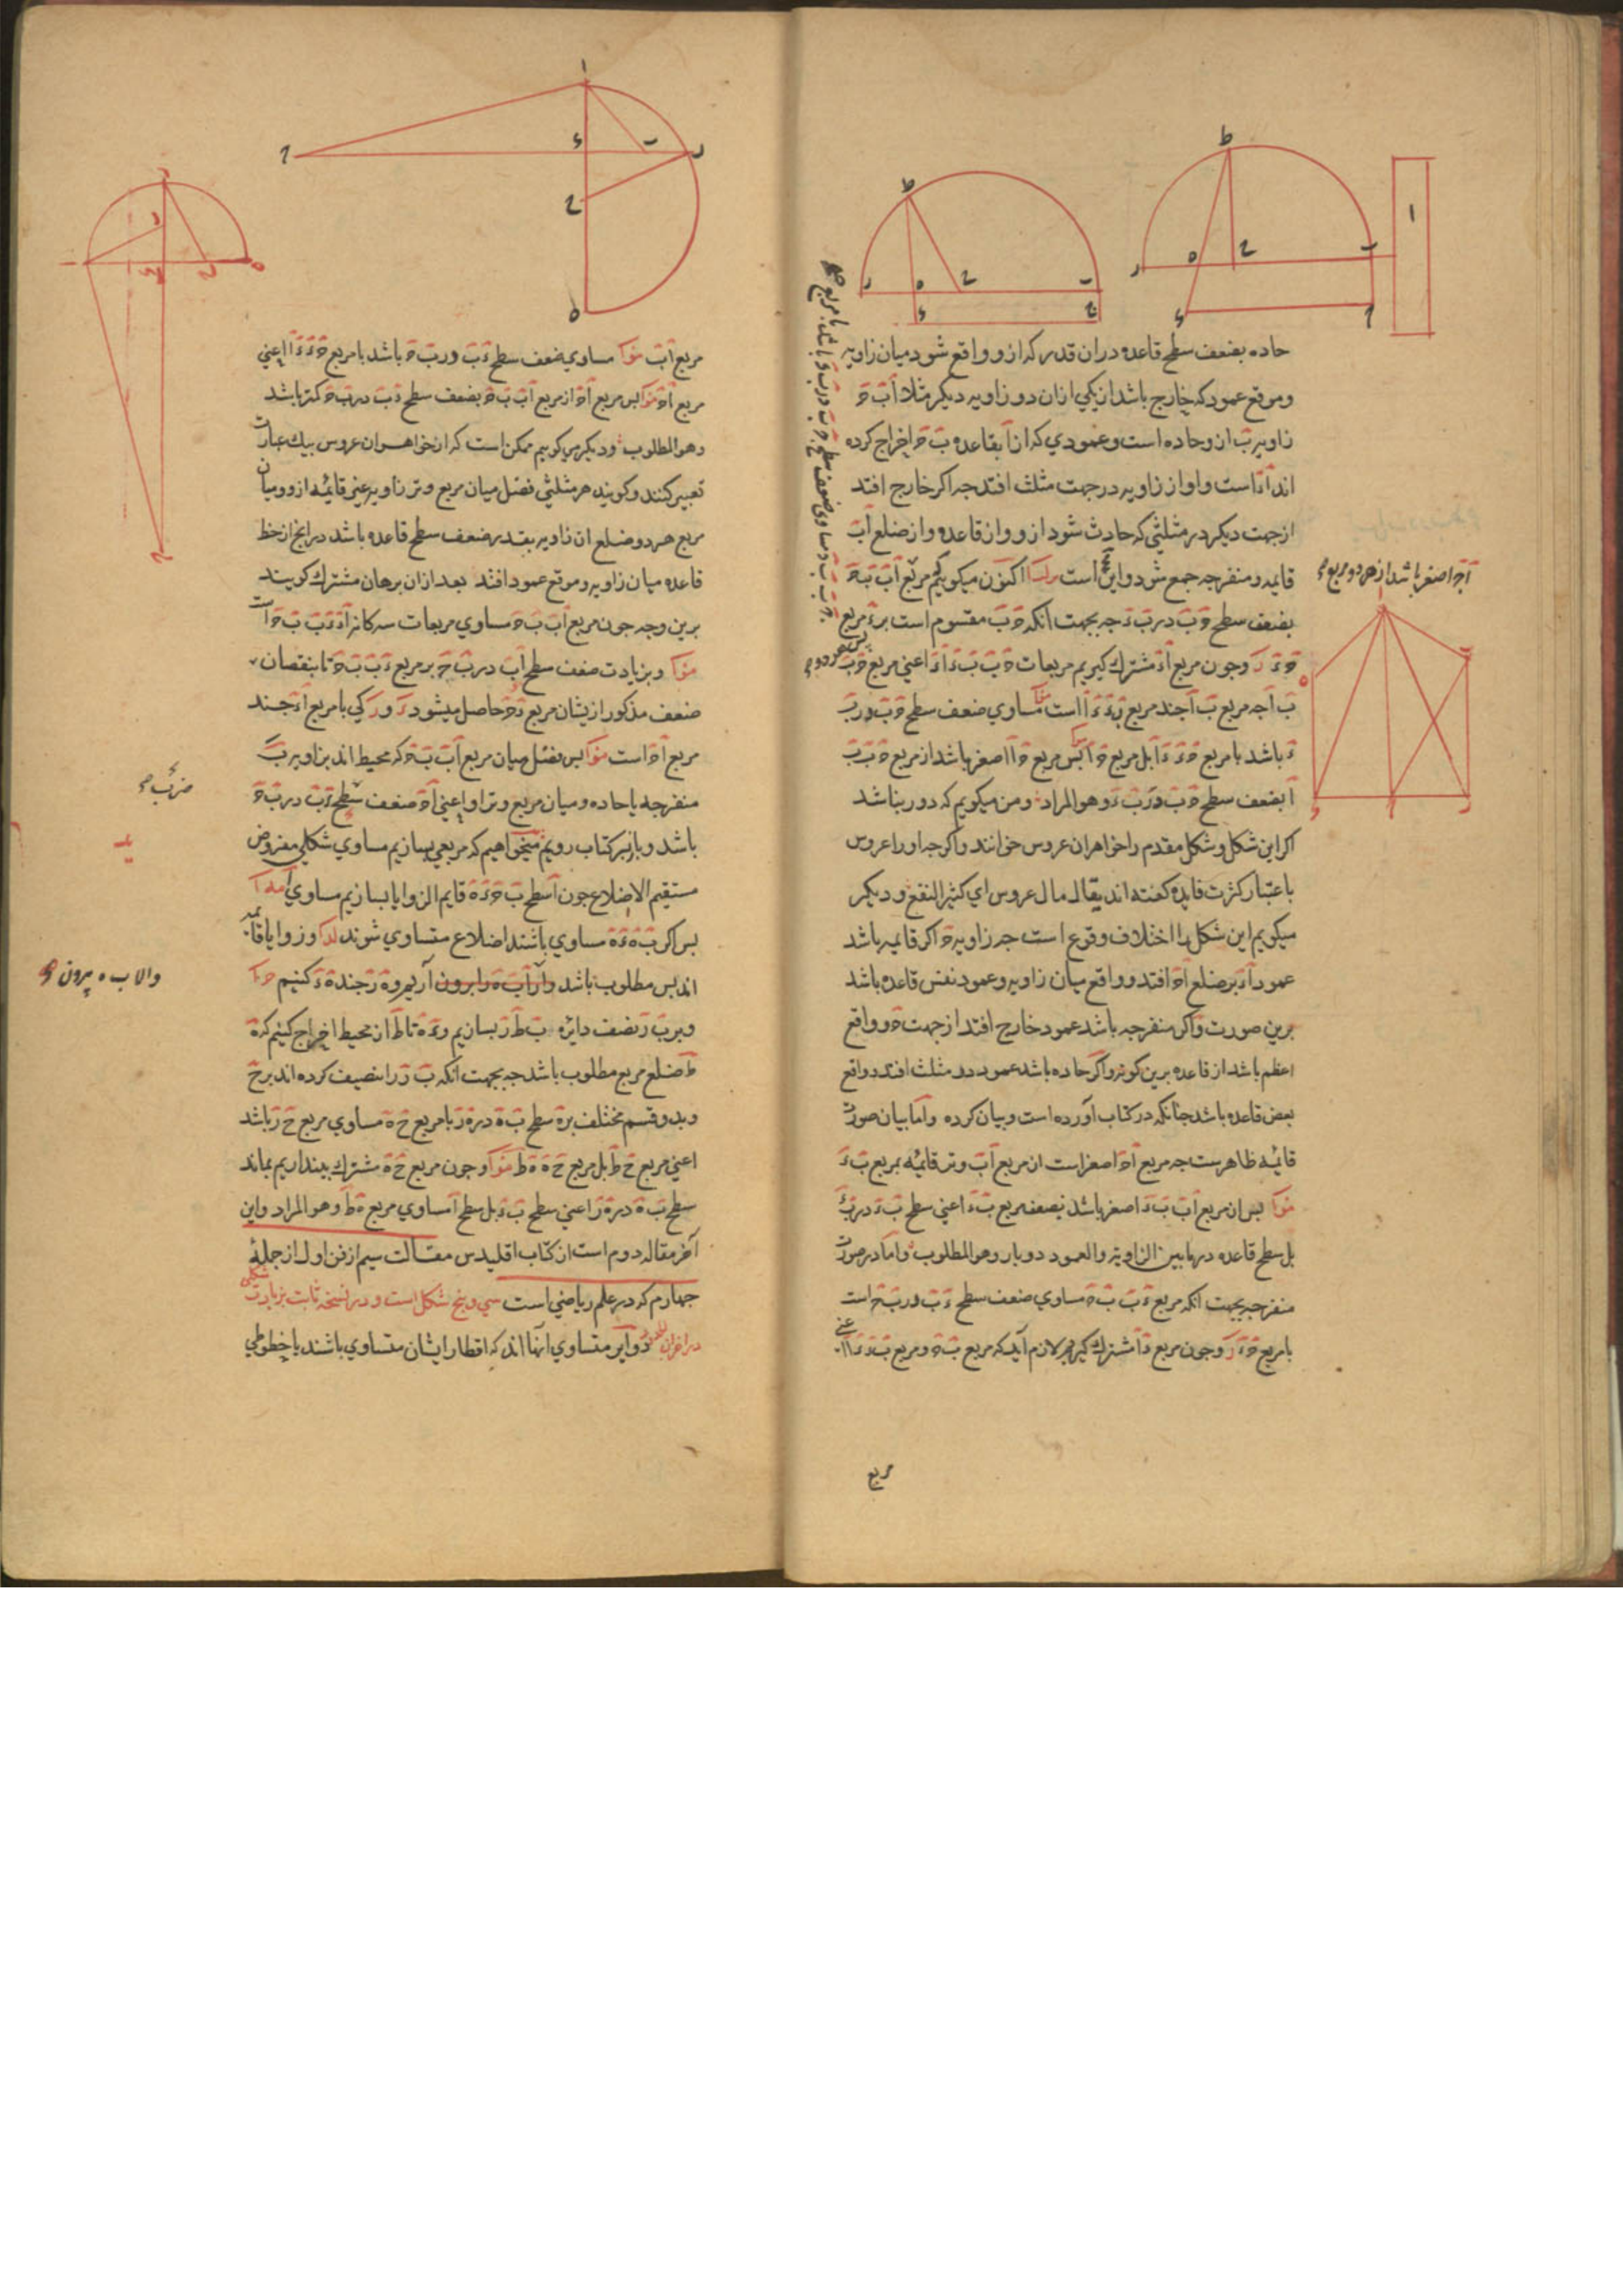 حاده بضعف سطح قاعده در ان قدر که ازو واقع شود میان زاویه
و موقع عمود که خارج باشد از یکی ازان دو زاویه دیکر مثلا اَبَ حَ
زاویه بَ ازو حاده است و عمودي که از اَ بقاعده بَ حَ اخراج کرده
اند اَءَ است و او از زاویه در جهت مثلث افتد جه اکر خارج افتد
از جهت دیکر در مثلثی که حادث شود ازو و از قاعده و از ضلع اَبَ
قایمه و منفرجه جمع شود و این است اکنون میکوییم مربع اَبَ بَ حَ
بضعف سطح حَ بَ در بَ ءَ جه بجهت انکه حَ بَ مقسوم است بر ءَ مربع
حَ ءَ وجون مربع اَءَ مشترک کیریم مربعات حَ بَ بَ ءَ اَءَ اعنی مربع حَ بَ
بَ اَ جه مربع بَ اَ جند مربع بَ ءَ ءَ اَ است مساوي ضعف سطح حَ بَ در بَ
ءَ باشد با مربع حَ ءَ ءَ اَ بل مربع حَ اَ بس مربع حَ اَ اصغر باشد از مربع حَ بَ بَ
اَ بضعف سطح حَ بَ در بَ ءَ وهو المراد ومن میکویم که دور نباشد
اکر این شکل و شکل مقدم را خواهران عروس خوانند و اکرجه اورا عروس
باعتبار کثرت فایده کفته اند یقال مال عروس اي کثیر النفع و دیکر
میکویم این شکل را اختلاف وقوع است جه زاویه حَ اکر قایمه باشد
عمود اَءَ بر ضلع اَحَ افتد و واقع میان زاویه و عمود نفس قاعده باشد
برین صورت و اکر منفرجه باشد عمود خارج افتد از جهت حَ و واقع
اعظم باشد از قاعده برین کونه و اکر حاده باشد عمود در مثلث افتد و واقع
بعض قاعده باشد جنانکه در کتاب آورده است و بیان کرده و اما بیان صورت
قایمه ظاهرست جه مربع اَحَ اصغر است از مربع اَبَ وتر قایمه بمربع بَ ءَ
بس از مربع اَبَ بَ ءَ اصغر باشد بضعف مربع بَ ءَ اعنی سطح بَ ءَ در بَ ءَ
بل سطح قاعده در مابین الزاویه و العمود دوبار وهو المطلوب و اما در صورت
منفرجه بجهت انکه مربع ءَ بَ بَ حَ مساوي ضعف سطح ءَ بَ در بَ حَ است
با مربع حَ ءَ وجون مربع ءَ اَ مشترک کیریم لازم آید که مربع بَ حَ و مربع بَ ءَ ءَ اَ
مربع
اَحَ اصغر باشد از هر دو مربع
مربع اَبَ مساوي ضعف سطح ءَ بَ در بَ حَ باشد با مربع حَ ءَ ءَ اَ اعنی
مربع اَحَ بس مربع اَحَ از مربع اَبَ بَ حَ بضعف سطح ءَ بَ در بَ حَ کمتر باشد
وهو المطلوب و دیکر میکوییم ممکن است که از خواهران عروس بیک عبارت
تعبیر کنند و کویند هر مثلثی فضل میان مربع وتر زاویه غیر قایمه ازو و میان
مربع هر دو ضلع ان زاویه بقدر ضعف سطح قاعده باشد در انج از خط
قاعده میان زاویه و موقع عمود افتد بعد ازان برهان مشترک کویند
برین وجه جون مربع اَبَ بَ حَ مساوي مربعات سه کانه اَءَ ءَ بَ بَ حَ است
و بزیادت ضعف سطح اَبَ در بَ حَ بر مربع ءَ بَ بَ حَ تا بنقصان
ضعف مذکور ازیشان مربع ءَ حَ حاصل میشود کی با مربع اَءَ جند
مربع اَحَ است بس فضل میان مربع اَبَ بَ حَ که محیط اند بزاویه بَ
منفرجه یا حاده و میان مربع وتر او اعنی اَحَ ضعف سطح ءَ بَ در بَ حَ
باشد و باز بسر کتاب رویم میخواهیم که مربعی بسازیم مساوي شکلی مفروض
مستقیم الاضلاع جون اَ سطح بَ حَ ءَ هَ قایم الزوایا بسازیم مساوي اَ
بس اکر بَ هَ هَ ءَ مساوي باشند اضلاع متساوي شوند و زوایا قایمه
اند بس مطلوب باشد و الا بَ هَ را بیرون آریم و هَ زَ جند هَ ءَ کنیم
و بر بَ زَ نصف دایره بَ طَ زَ بسازیم و ءَ هَ تا طَ از محیط اخراج کنیم که هَ
طَ ضلع مربع مطلوب باشد جه بجهت انکه بَ زَ را تنصیف کرده اند بر حَ
و بدو قسم مختلف بر هَ سطح بَ هَ در هَ زَ با مربع حَ هَ مساوي مربع حَ زَ باشد
اعنی مربع حَ طَ بل مربع حَ هَ هَ طَ وجون مربع حَ هَ مشترک بیندازیم بماند
سطح بَ هَ در هَ زَ اعنی سطح بَ ءَ بل سطح اَ مساوي مربع هَ طَ وهو المراد و این
آخر مقاله دوم است از کتاب اقلیدس مقالت سیم از فن اول از جملهٔ
جهارم که در علم ریاضی است سی و پنج شکل است و در نسخه ثابت بزیادت شکلی
در اخران دوایر متساوي انها اند که اقطار ایشان متساوي باشند یا خطوطی
والا ب ه بیرون